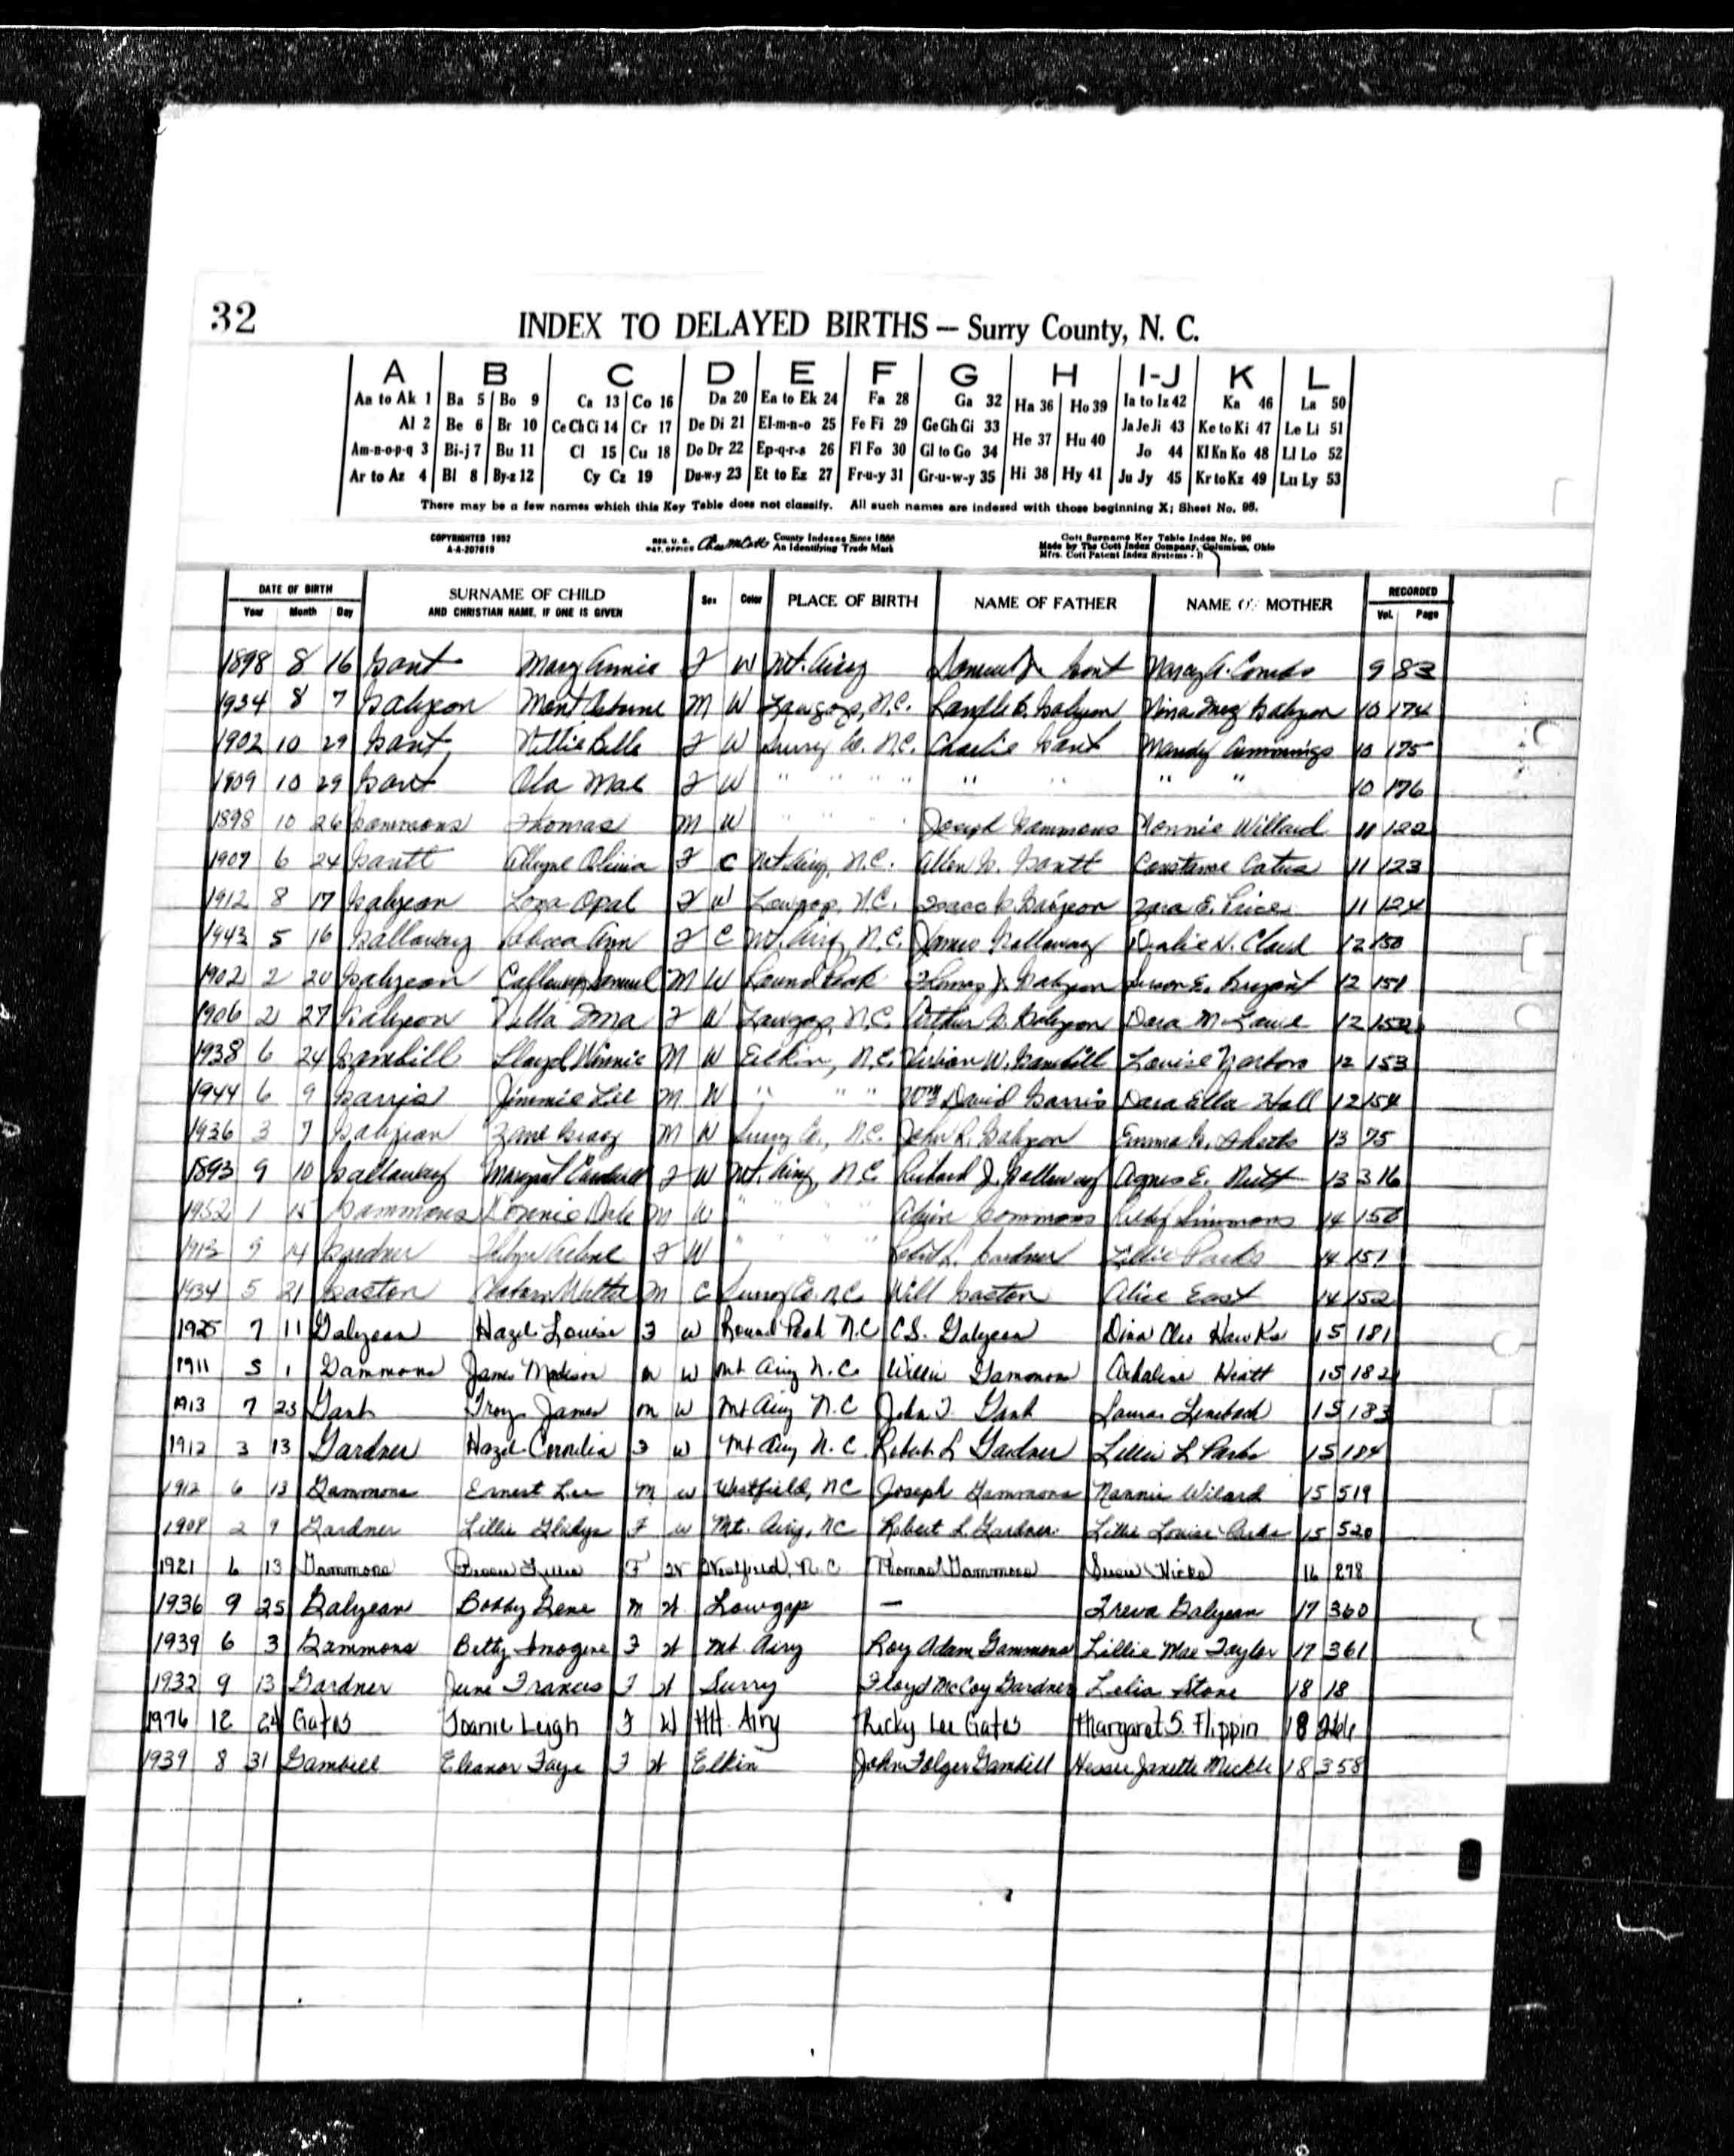 32
INDEX TO DELAYED BIRTHS — Surry County, N. C.
A B C D E F G H I-J K L
Aa to Ak 1 Ba 5 Bo 9 Ca 13 Co 16 Da 20 Ea to Ek 24 Fa 28 Ga 32 Ha 36 Ho 39 Ia to Iz 42 Ka 46 La 50
Al 2 Be 6 Br 10 Ce Ch Ci 14 Cr 17 De Di 21 El-m-n-o 25 Fe Fi 29 Ge Gh Gi 33 He 37 Hu 40 Ja Je Ji 43 Ke to Ki 47 Le Li 51
Am-n-o-p-q 3 Bi-j 7 Bu 11 Cl 15 Cu 18 Do Dr 22 Ep-q-r-s 26 Fl Fo 30 Gl to Go 34 Jo 44 Kl Kn Ko 48 Ll Lo 52
Ar to Az 4 Bl 8 By-z 12 Cy Cz 19 Du-w-y 23 Et to Ez 27 Fr-u-y 31 Gr-u-w-y 35 Hi 38 Hy 41 Ju Jy 45 Kr to Kz 49 Lu Ly 53
There may be a few names which this Key Table does not classify. All such names are indexed with those beginning X; Sheet No. 95.
COPYRIGHTED 1952 REG. U. S. County Indexes Since 1888 Cott Surname Key Table Index No. 96
A-A-207619 PAT. OFFICE An Identifying Trade Mark Made by The Cott Index Company, Columbus, Ohio
Mfrs. Cott Patent Index Systems
DATE OF BIRTH SURNAME OF CHILD Sex Color PLACE OF BIRTH NAME OF FATHER NAME OF MOTHER RECORDED
Year Month Day AND CHRISTIAN NAME, IF ONE IS GIVEN Vol. Page
1898 8 16 Gant Mary Annie F W Mt. Airy Samuel J. Gant Nancy A. 9 83
1934 8 7 Galyean Mont Osborne M W Lowgap, N.C. B. Galyean Nina Inez Galyean 10 174
1902 10 29 Gant Nillie Belle F W Surry Co. N.C. Charlie Gant Mandy Cummings 10 175
1909 10 29 Gant Ola Mae F W " " " " " " " " 10 176
1898 10 26 Gammons Thomas M W " " " " Joseph Gammons Nonnie Willard 11 122
1907 6 24 Gantt Allyne Olivia F C Mt. Airy, N.C. Allen G. Gantt Constance 11 123
1912 8 17 Galyean Lona Opal F W Lowgap, N.C. Isaac Galyean Zora E. Price 11 124
1943 5 16 Gallaway Ann F C Mt. Airy, N.C. James Gallaway N. Cloud 12 150
1902 2 20 Galyean Calloway Samuel M W Round Peak Thomas J. Galyean E. Bryant 12 151
1906 2 27 Galyean Vella Irma F W Lowgap, N.C. Arthur G. Galyean Dora M. Lowe 12 152
1938 6 24 Gambill Lloyd Winnie M W Elkin, N.C. W. Gambill Louise Yarboro 12 153
1944 6 9 Garris Jimmie Lee M W " " " Wm David Garris Dora Ella Hall 12 154
1936 3 7 Galyean Zane Gray M W Surry Co., N.C. John R. Galyean Emma G. 13 75
1893 9 10 Gallaway Margaret F W Mt. Airy, N.C. Richard J. Galloway Agnes E. Nutt 13 316
1952 1 15 Gammons Donnie Dale M W " " " " Gammons Ruby Simmons 14 150
1913 9 14 Gardner F W " " " " Robt L. Gardner Lillie Parks 14 151
1934 5 21 Gaston M C Surry Co. N.C. Will Gaston Alice East 14 152
1925 7 11 Galyean Hazel Louise F W Round Peak N.C C.S. Galyean Dina Cleo Hawks 15 181
1911 5 1 Gammons James Madison M W Mt Airy N.C. Willie Gammons Hiatt 15 182
1913 7 23 Gant Troy James M W Mt Airy N.C John T. Gant Laura Linebach 15 183
1912 3 13 Gardner Hazel Cornelia F W Mt Airy N.C. Robert L Gardner Lillie L Parks 15 184
1912 6 13 Gammons Ernest Lee M W Westfield, NC Joseph Gammons Nannie Wilard 15 519
1908 2 9 Gardner Lillie Gladys F W Mt. Airy, NC Robert L. Gardner Lillie Louise Parks 15 520
1921 6 13 Gammons F W Westfield, N.C Thomas Gammons Susie Hicks 16 278
1936 9 25 Galyean Bobby Gene M W Lowgap — Treva Galyean 17 360
1939 6 3 Gammons Betty Imogene F W Mt. Airy Roy Adam Gammons Lillie Mae Taylor 17 361
1932 9 13 Gardner June Frances F W Surry Floyd McCoy Gardner Lelia Stone 18 18
1976 12 24 Gates Joanie Leigh F W Mt. Airy Ricky Lee Gates Margaret S. Flippin 18
1939 8 31 Gambill Eleanor Faye F W Elkin John Folger Gambill Hessie Janette Mickle 18 358